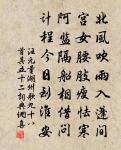 北風吹雨入蓬間
宮女腰肢瘦怯寒
阿監隔船相借問
計程今日到淮安
汪元量湖州歌九十八
首其五十二詞典網喜